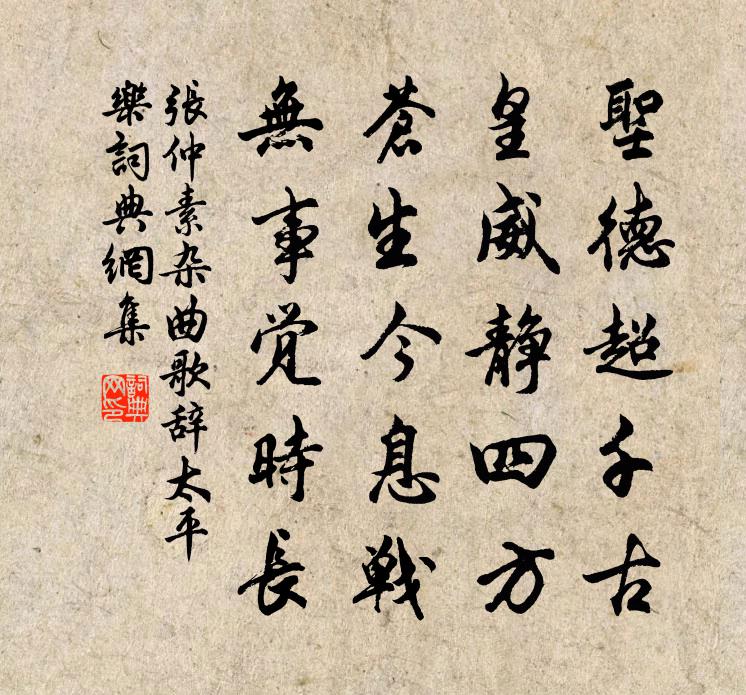 聖德超千古
皇威静四方
蒼生今息戦
無事覚時長
張仲素杂曲歌辞太平
樂詞典網集
詞典网印